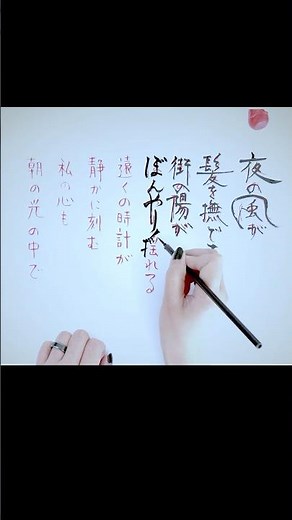 夜の風が
髪を撫で
街の陽が
ぼんやり揺れる
遠くの時計が
静かに刻む
私の心も
朝の光の中で